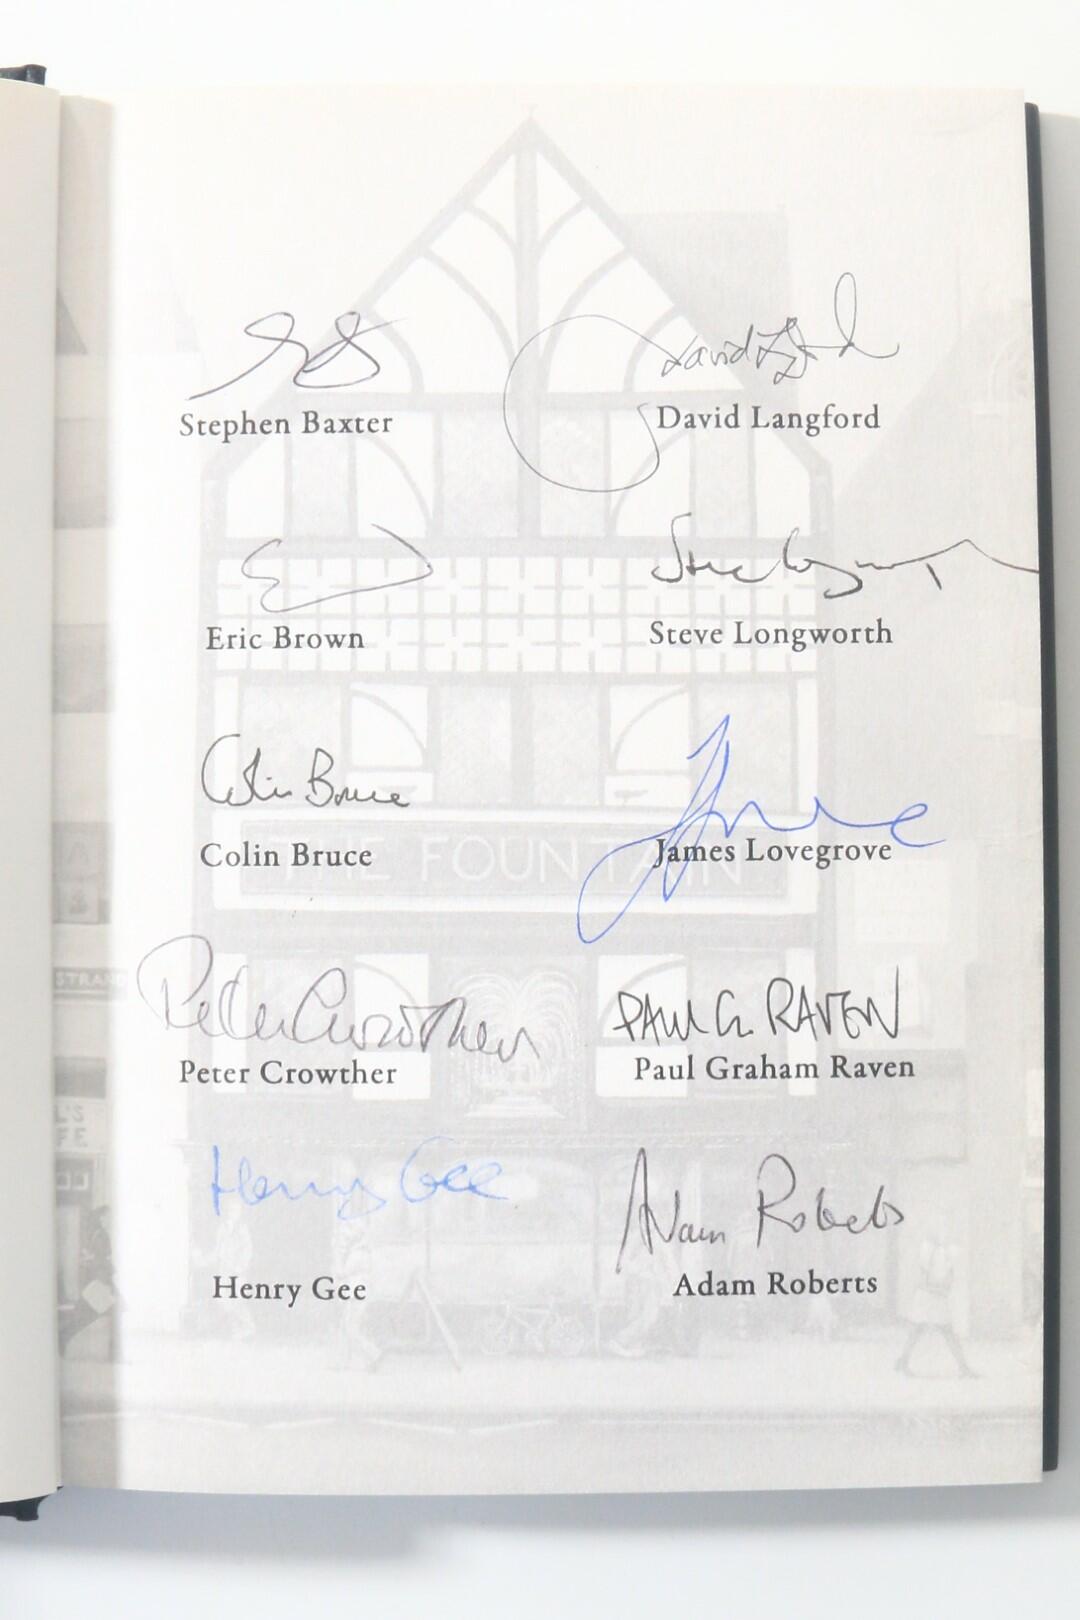 David Langford
Stephen Baxter
David Langford
Steve Longworth
Eric Brown
Steve Longworth
Colin Bruce
Colin Bruce
James Lovegrove
THE FOUNTAIN
Peter Crowther
PAUL G. RAVEN
STRAND
Peter Crowther
Paul Graham Raven
L'S
FE
Henry Gee
Adam Roberts
Henry Gee
Adam Roberts